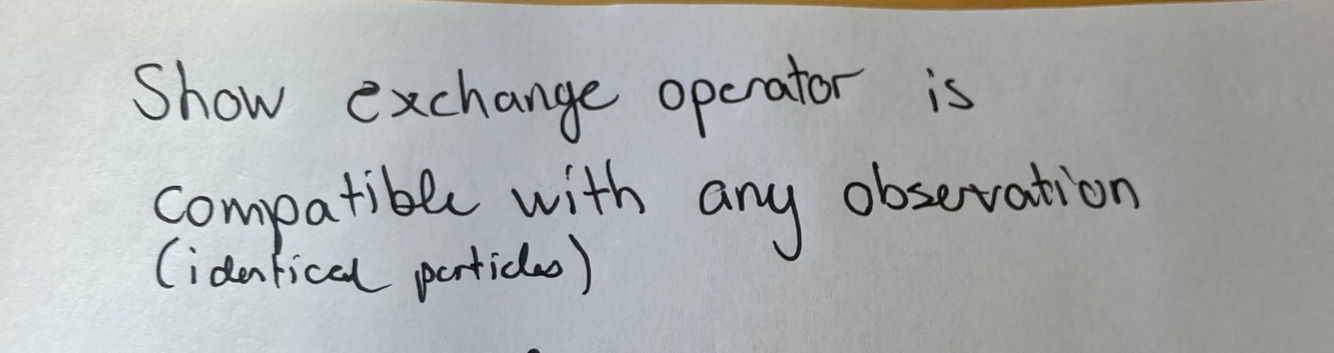 Show exchange operator is
compatible with any observation
(identical particles)